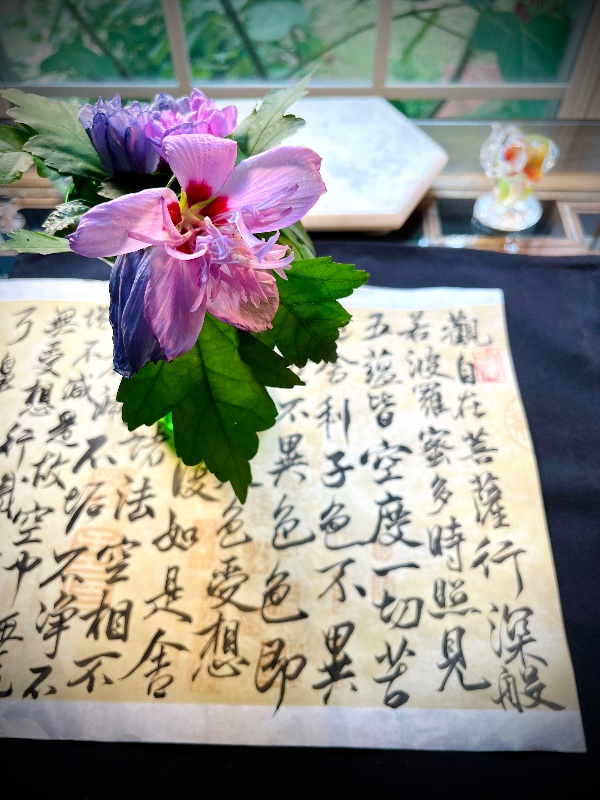 觀自在菩薩行深般
若波羅蜜多時照見
五蘊皆空度一切苦
舍利子色不異
不異色色即
色受想
復如是舍
諸法空相不
不滅不垢不淨不
無受想是故空中無
行識